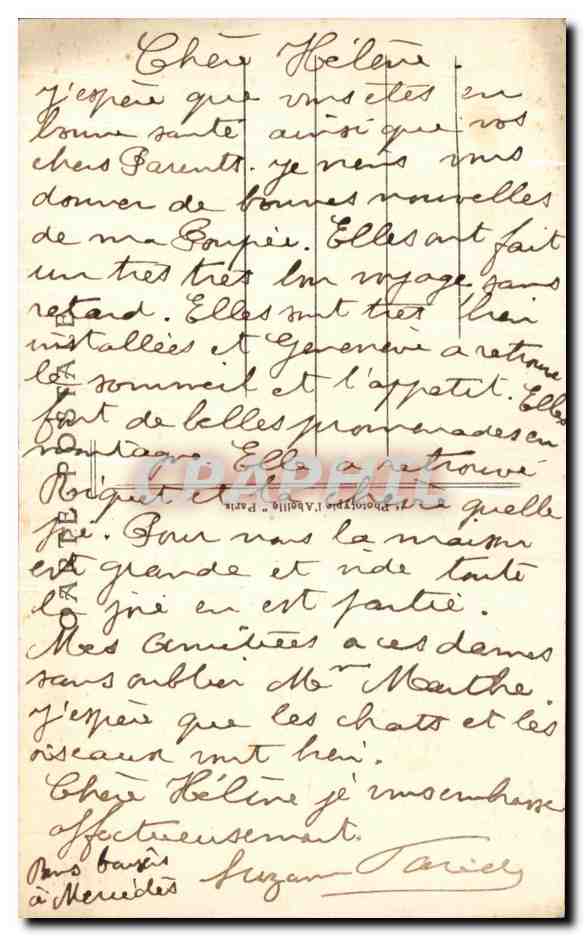 Chère Hélène.
j'espère que vous êtes en
bonne santé ainsi que vos
chers Parents. je viens vous
donner de bonnes nouvelles
de ma Poupée. Elles ont fait
un très très bon voyage sans
retard. Elles sont très bien
installées et Geneviève a retrouvé
le sommeil et l'appetit. Elles
font de belles promenades en
montagne. Elle a retrouvé
Riquet et la chère quelle
joie. Pour nous la maison
est grande et vide toute
la joie en est partie.
Mes amitiées a ces dames
sans oublier Mme Marthe.
j'espère que les chats et les
oiseaux vont bien.
Chère Hélène je vous embrasse
affectueusement.
Bons baisers
à Mercédès
Suzanne
CARTE POSTALE
Phototypie l'Abeille " Paris
CPAPHIL